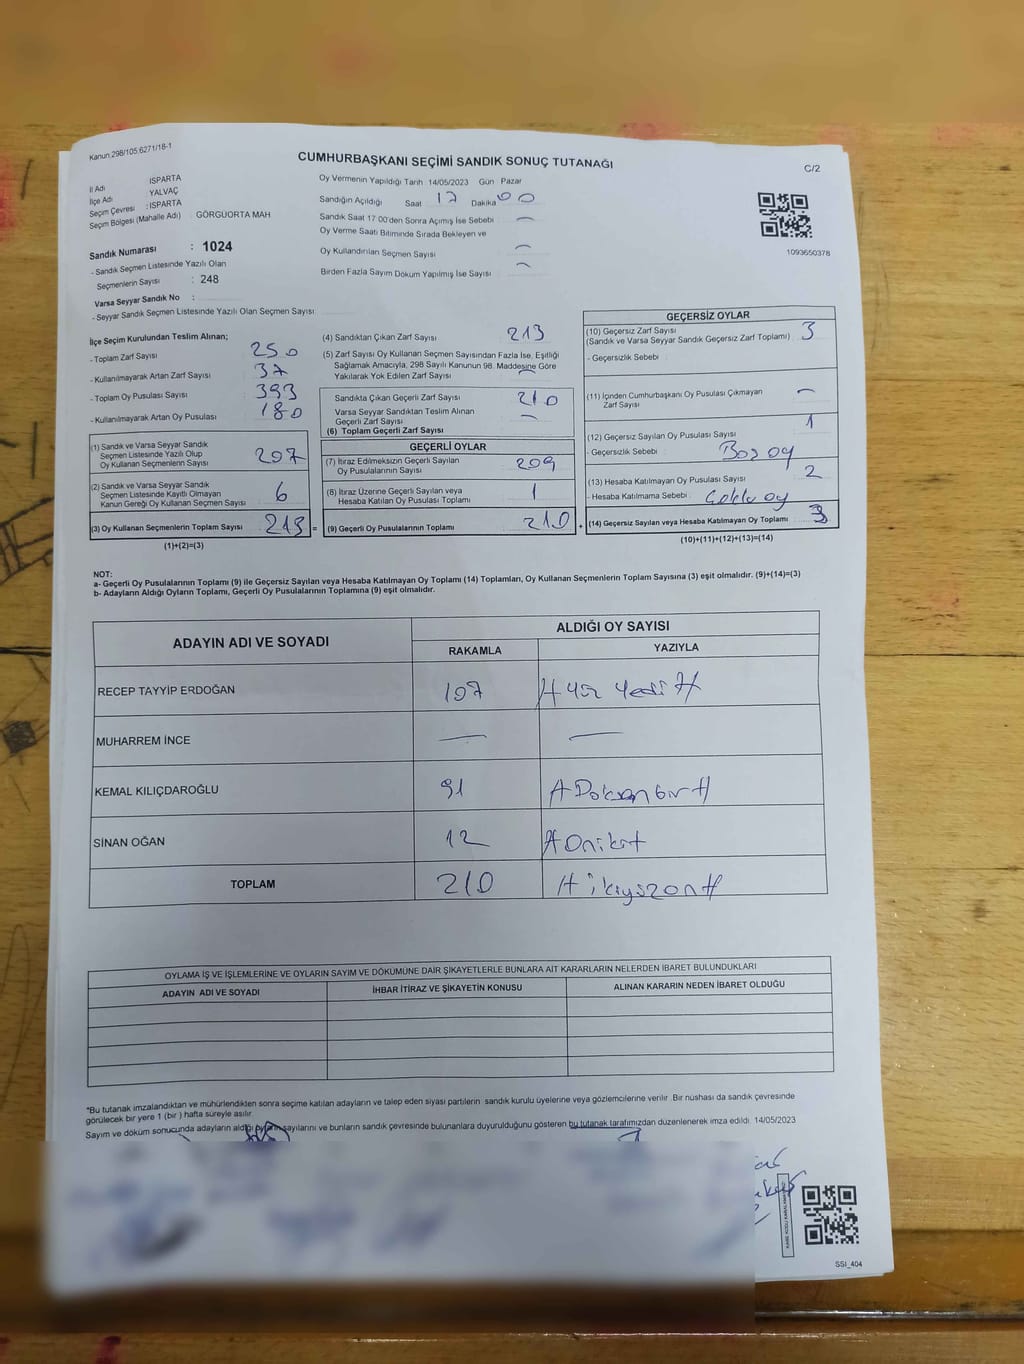 Kanun:298/105,6271/18-1
CUMHURBAŞKANI SEÇİMİ SANDIK SONUÇ TUTANAĞI
C/2
İl Adı : ISPARTA
İlçe Adı : YALVAÇ
Seçim Çevresi : ISPARTA
Seçim Bölgesi (Mahalle Adı) : GÖRGÜORTA MAH
Sandık Numarası : 1024
- Sandık Seçmen Listesinde Yazılı Olan
Seçmenlerin Sayısı : 248
Varsa Seyyar Sandık No :
- Seyyar Sandık Seçmen Listesinde Yazılı Olan Seçmen Sayısı
Oy Vermenin Yapıldığı Tarih 14/05/2023 Gün Pazar
Sandığın Açıldığı Saat 17 Dakika 00
Sandık Saat 17:00'den Sonra Açımış İse Sebebi —
Oy Verme Saati Bitiminde Sırada Bekleyen ve
Oy Kullandırılan Seçmen Sayısı —
Birden Fazla Sayım Döküm Yapılmış İse Sayısı —
1093650378
İlçe Seçim Kurulundan Teslim Alınan;
- Toplam Zarf Sayısı 250
- Kullanılmayarak Artan Zarf Sayısı 37
- Toplam Oy Pusulası Sayısı 393
- Kullanılmayarak Artan Oy Pusulası 180
(1) Sandık ve Varsa Seyyar Sandık
Seçmen Listesinde Yazılı Olup
Oy Kullanan Seçmenlerin Sayısı 207
(2) Sandık ve Varsa Seyyar Sandık
Seçmen Listesinde Kayıtlı Olmayan
Kanun Gereği Oy Kullanan Seçmen Sayısı 6
(3) Oy Kullanan Seçmenlerin Toplam Sayısı 213 =
(1)+(2)=(3)
(4) Sandıktan Çıkan Zarf Sayısı 213
(5) Zarf Sayısı Oy Kullanan Seçmen Sayısından Fazla İse, Eşitliği
Sağlamak Amacıyla, 298 Sayılı Kanunun 98. Maddesine Göre
Yakılarak Yok Edilen Zarf Sayısı —
Sandıkta Çıkan Geçerli Zarf Sayısı 210
Varsa Seyyar Sandıktan Teslim Alınan
Geçerli Zarf Sayısı —
(6) Toplam Geçerli Zarf Sayısı
GEÇERLİ OYLAR
(7) İtiraz Edilmeksizin Geçerli Sayılan
Oy Pusulalarının Sayısı 209
(8) İtiraz Üzerine Geçerli Sayılan veya
Hesaba Katılan Oy Pusulası Toplamı 1
(9) Geçerli Oy Pusulalarının Toplamı 210 +
GEÇERSİZ OYLAR
(10) Geçersiz Zarf Sayısı 3
(Sandık ve Varsa Seyyar Sandık Geçersiz Zarf Toplamı)
- Geçersizlik Sebebi
(11) İçinden Cumhurbaşkanı Oy Pusulası Çıkmayan
Zarf Sayısı —
(12) Geçersiz Sayılan Oy Pusulası Sayısı 1
- Geçersizlik Sebebi : Boş oy
(13) Hesaba Katılmayan Oy Pusulası Sayısı 2
- Hesaba Katılmama Sebebi : Çoklu oy
(14) Geçersiz Sayılan veya Hesaba Katılmayan Oy Toplamı 3
(10)+(11)+(12)+(13)=(14)
NOT:
a- Geçerli Oy Pusulalarının Toplamı (9) ile Geçersiz Sayılan veya Hesaba Katılmayan Oy Toplamı (14) Toplamları, Oy Kullanan Seçmenlerin Toplam Sayısına (3) eşit olmalıdır. (9)+(14)=(3)
b- Adayların Aldığı Oyların Toplamı, Geçerli Oy Pusulalarının Toplamına (9) eşit olmalıdır.
ADAYIN ADI VE SOYADI ALDIĞI OY SAYISI
RAKAMLA YAZIYLA
RECEP TAYYİP ERDOĞAN 107 # Yüz Yedi #
MUHARREM İNCE — —
KEMAL KILIÇDAROĞLU 91 # Doksan bir #
SİNAN OĞAN 12 # Oniki #
TOPLAM 210 # ikiyüzon #
OYLAMA İŞ VE İŞLEMLERİNE VE OYLARIN SAYIM VE DÖKÜMÜNE DAİR ŞİKAYETLERLE BUNLARA AİT KARARLARIN NELERDEN İBARET BULUNDUKLARI
ADAYIN ADI VE SOYADI İHBAR İTİRAZ VE ŞİKAYETİN KONUSU ALINAN KARARIN NEDEN İBARET OLDUĞU
*Bu tutanak imzalandıktan ve mühürlendikten sonra seçime katılan adayların ve talep eden siyasi partilerin sandık kurulu üyelerine veya gözlemcilerine verilir. Bir nüshası da sandık çevresinde
görülecek bir yere 1 (bir ) hafta süreyle asılır.
Sayım ve döküm sonucunda adayların aldığı oyların sayılarını ve bunların sandık çevresinde bulunanlara duyurulduğunu gösteren bu tutanak tarafımızdan düzenlenerek imza edildi. 14/05/2023
SSI_404